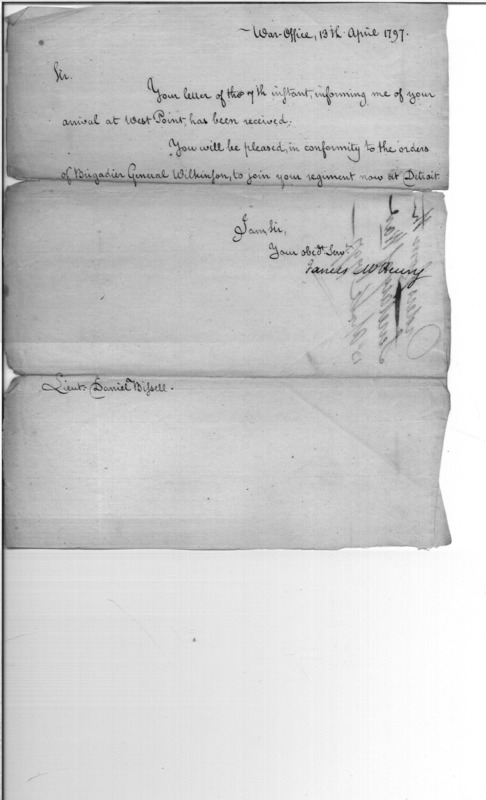 War-Office, 13th April 1797.
Sir.
Your letter of the 7th instant, informing me of your
arrival at West Point, has been received.
You will be pleased, in conformity to the orders
of Brigadier General Wilkinson, to join your regiment now at Detroit.
I am Sir,
Your obedt. Servt.
James McHenry
Lieut. Daniel Bissell.